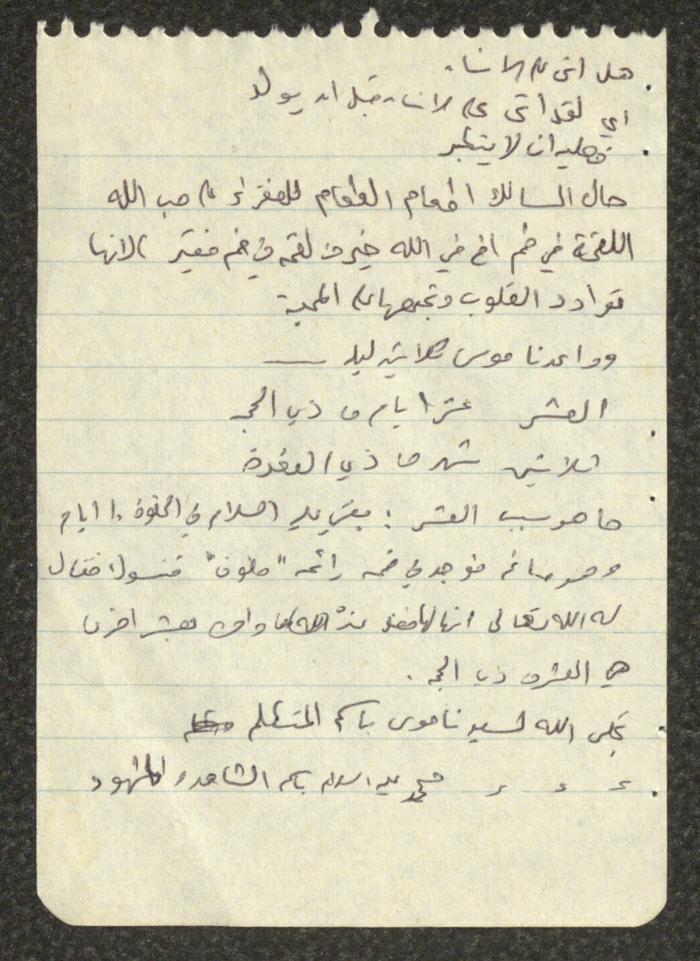 هل اتى على الانسان
اي لقد أتى على الانسان قبل ان يولد
فعليه ان لا يتكبر
حال السالك اطعام الطعام للفقراء على حب الله
اللقمة في فم اخ في الله خير من لقمة في فم فقير لانها
توادد القلوب وتجمعها على المحبة
وواعدنا موسى ثلاثين ليلة
العشر عشر ايام من ذي الحجة
ثلاثين شهر ذي القعدة
ما هو سبب العشر : بقي عليه السلام في الخلوة ايام
وهو صائم فوجد في فمه رائحة "خلوف" فتسوك فقال
له الله تعالى انها عند الله بعشر اخرى
هي العشر من ذي الحجة .
تجلى الله لسيدنا موسى باسم المتكلم
ء ء ء محمد عليه السلام باسم الشاهد والمشهود